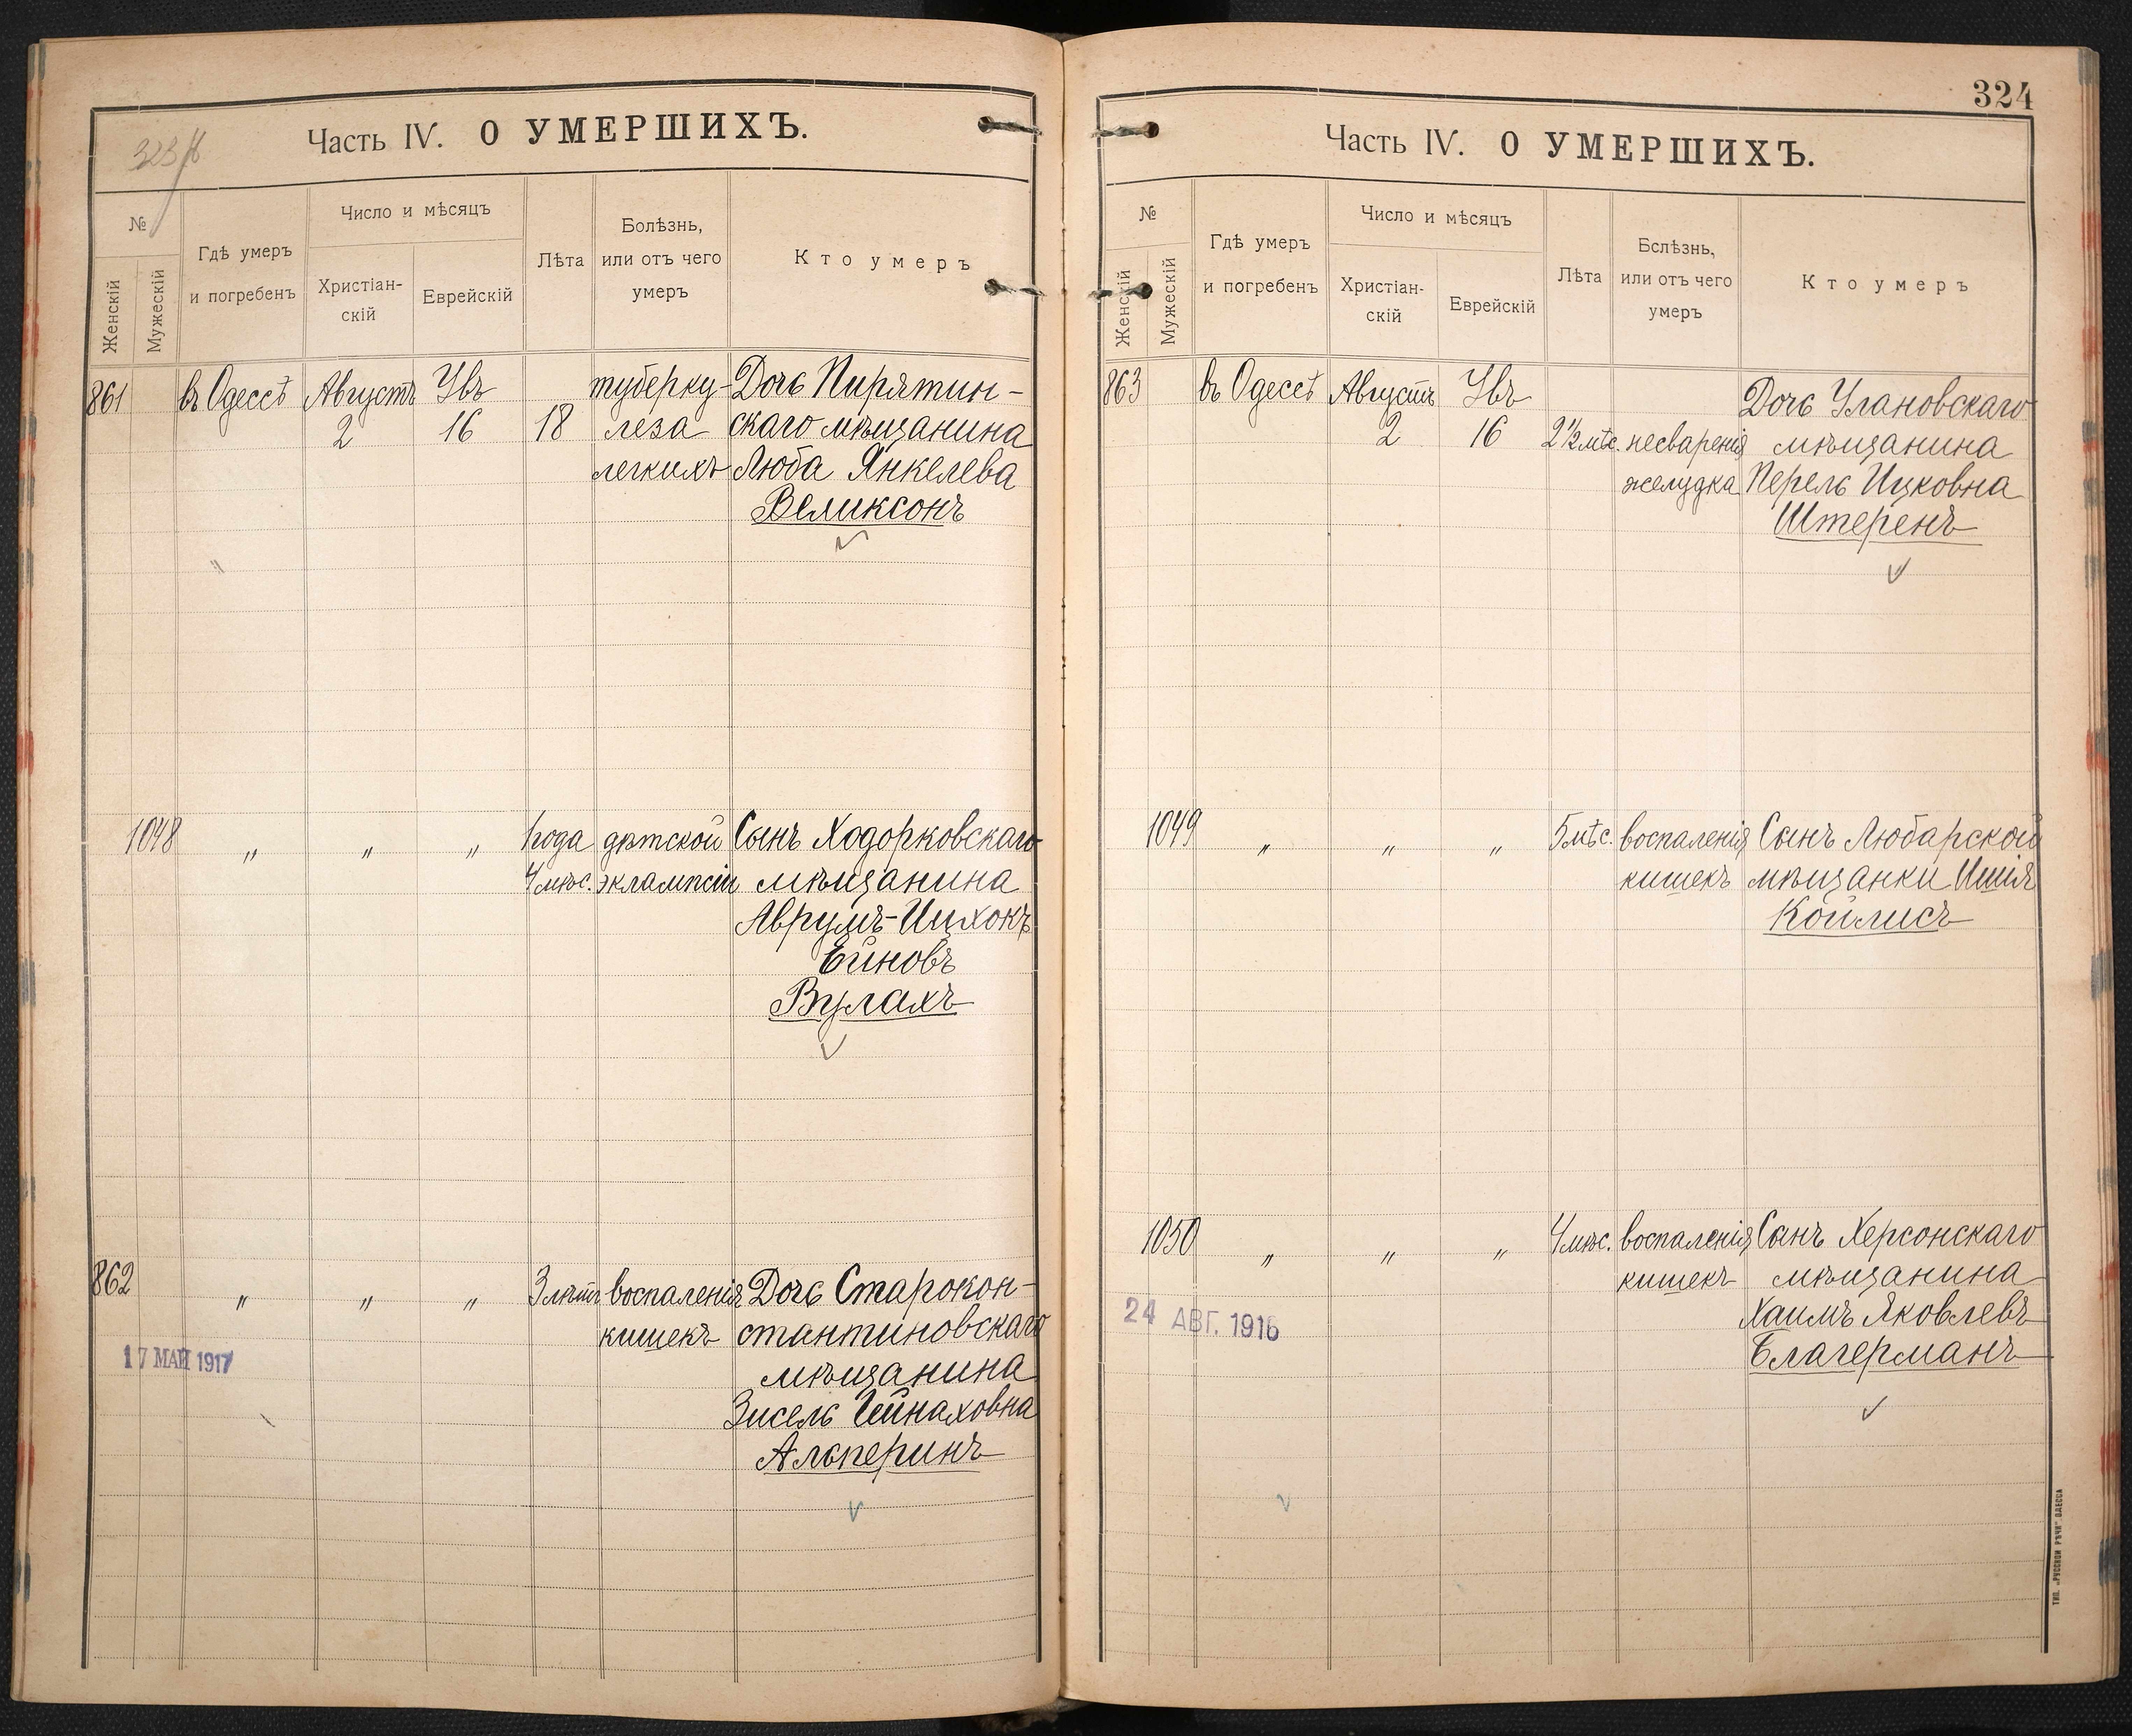 323 об
Часть IV. О УМЕРШИХЪ.
№
Женскій
Мужескій
Гдѣ умеръ
и погребенъ
Число и мѣсяцъ
Христіан-
скій
Еврейскій
Лѣта
Болѣзнь,
или отъ чего
умеръ
Кто умеръ
861 въ Одессѣ Августъ Увъ туберку- Дочь Пирятин-
2 16 18 леза скаго мѣщанина
легкихъ Люба Янкелева
Великсонъ
1048 " " " 1 года дѣтской Сынъ Ходорковскаго
4 мѣс. эклампсіи мѣщанина
Аврумъ-Ицхокъ
Ейновъ
Вулахъ
862 " " " 3 лѣтъ воспаленія Дочь Старокон-
кишекъ стантиновскаго
17 МАЙ 1917
мѣщанина
Зисель Гейнаховна
Альперинъ
324
Часть IV. О УМЕРШИХЪ.
№
Женскій
Мужескій
Гдѣ умеръ
и погребенъ
Число и мѣсяцъ
Христіан-
скій
Еврейскій
Лѣта
Бслѣзнь,
или отъ чего
умеръ
Кто умеръ
863 въ Одессѣ Августъ Увъ Дочь Улановскаго
2 16 2½ мѣс. несваренія мѣщанина
желудка Перель Ицковна
Штеренъ
1049 " " " 5 мѣс. воспаленія Сынъ Любарской
кишекъ мѣщанки Ишія
Койлисъ
1050 " " " 4 мѣс. воспаленія Санъ Херсонскаго
кишекъ мѣщанина
24 АВГ. 1916
Хаимъ Яковлевъ
Благерманъ
ТИП. „РУССКОЙ РѢЧИ“ ОДЕССА